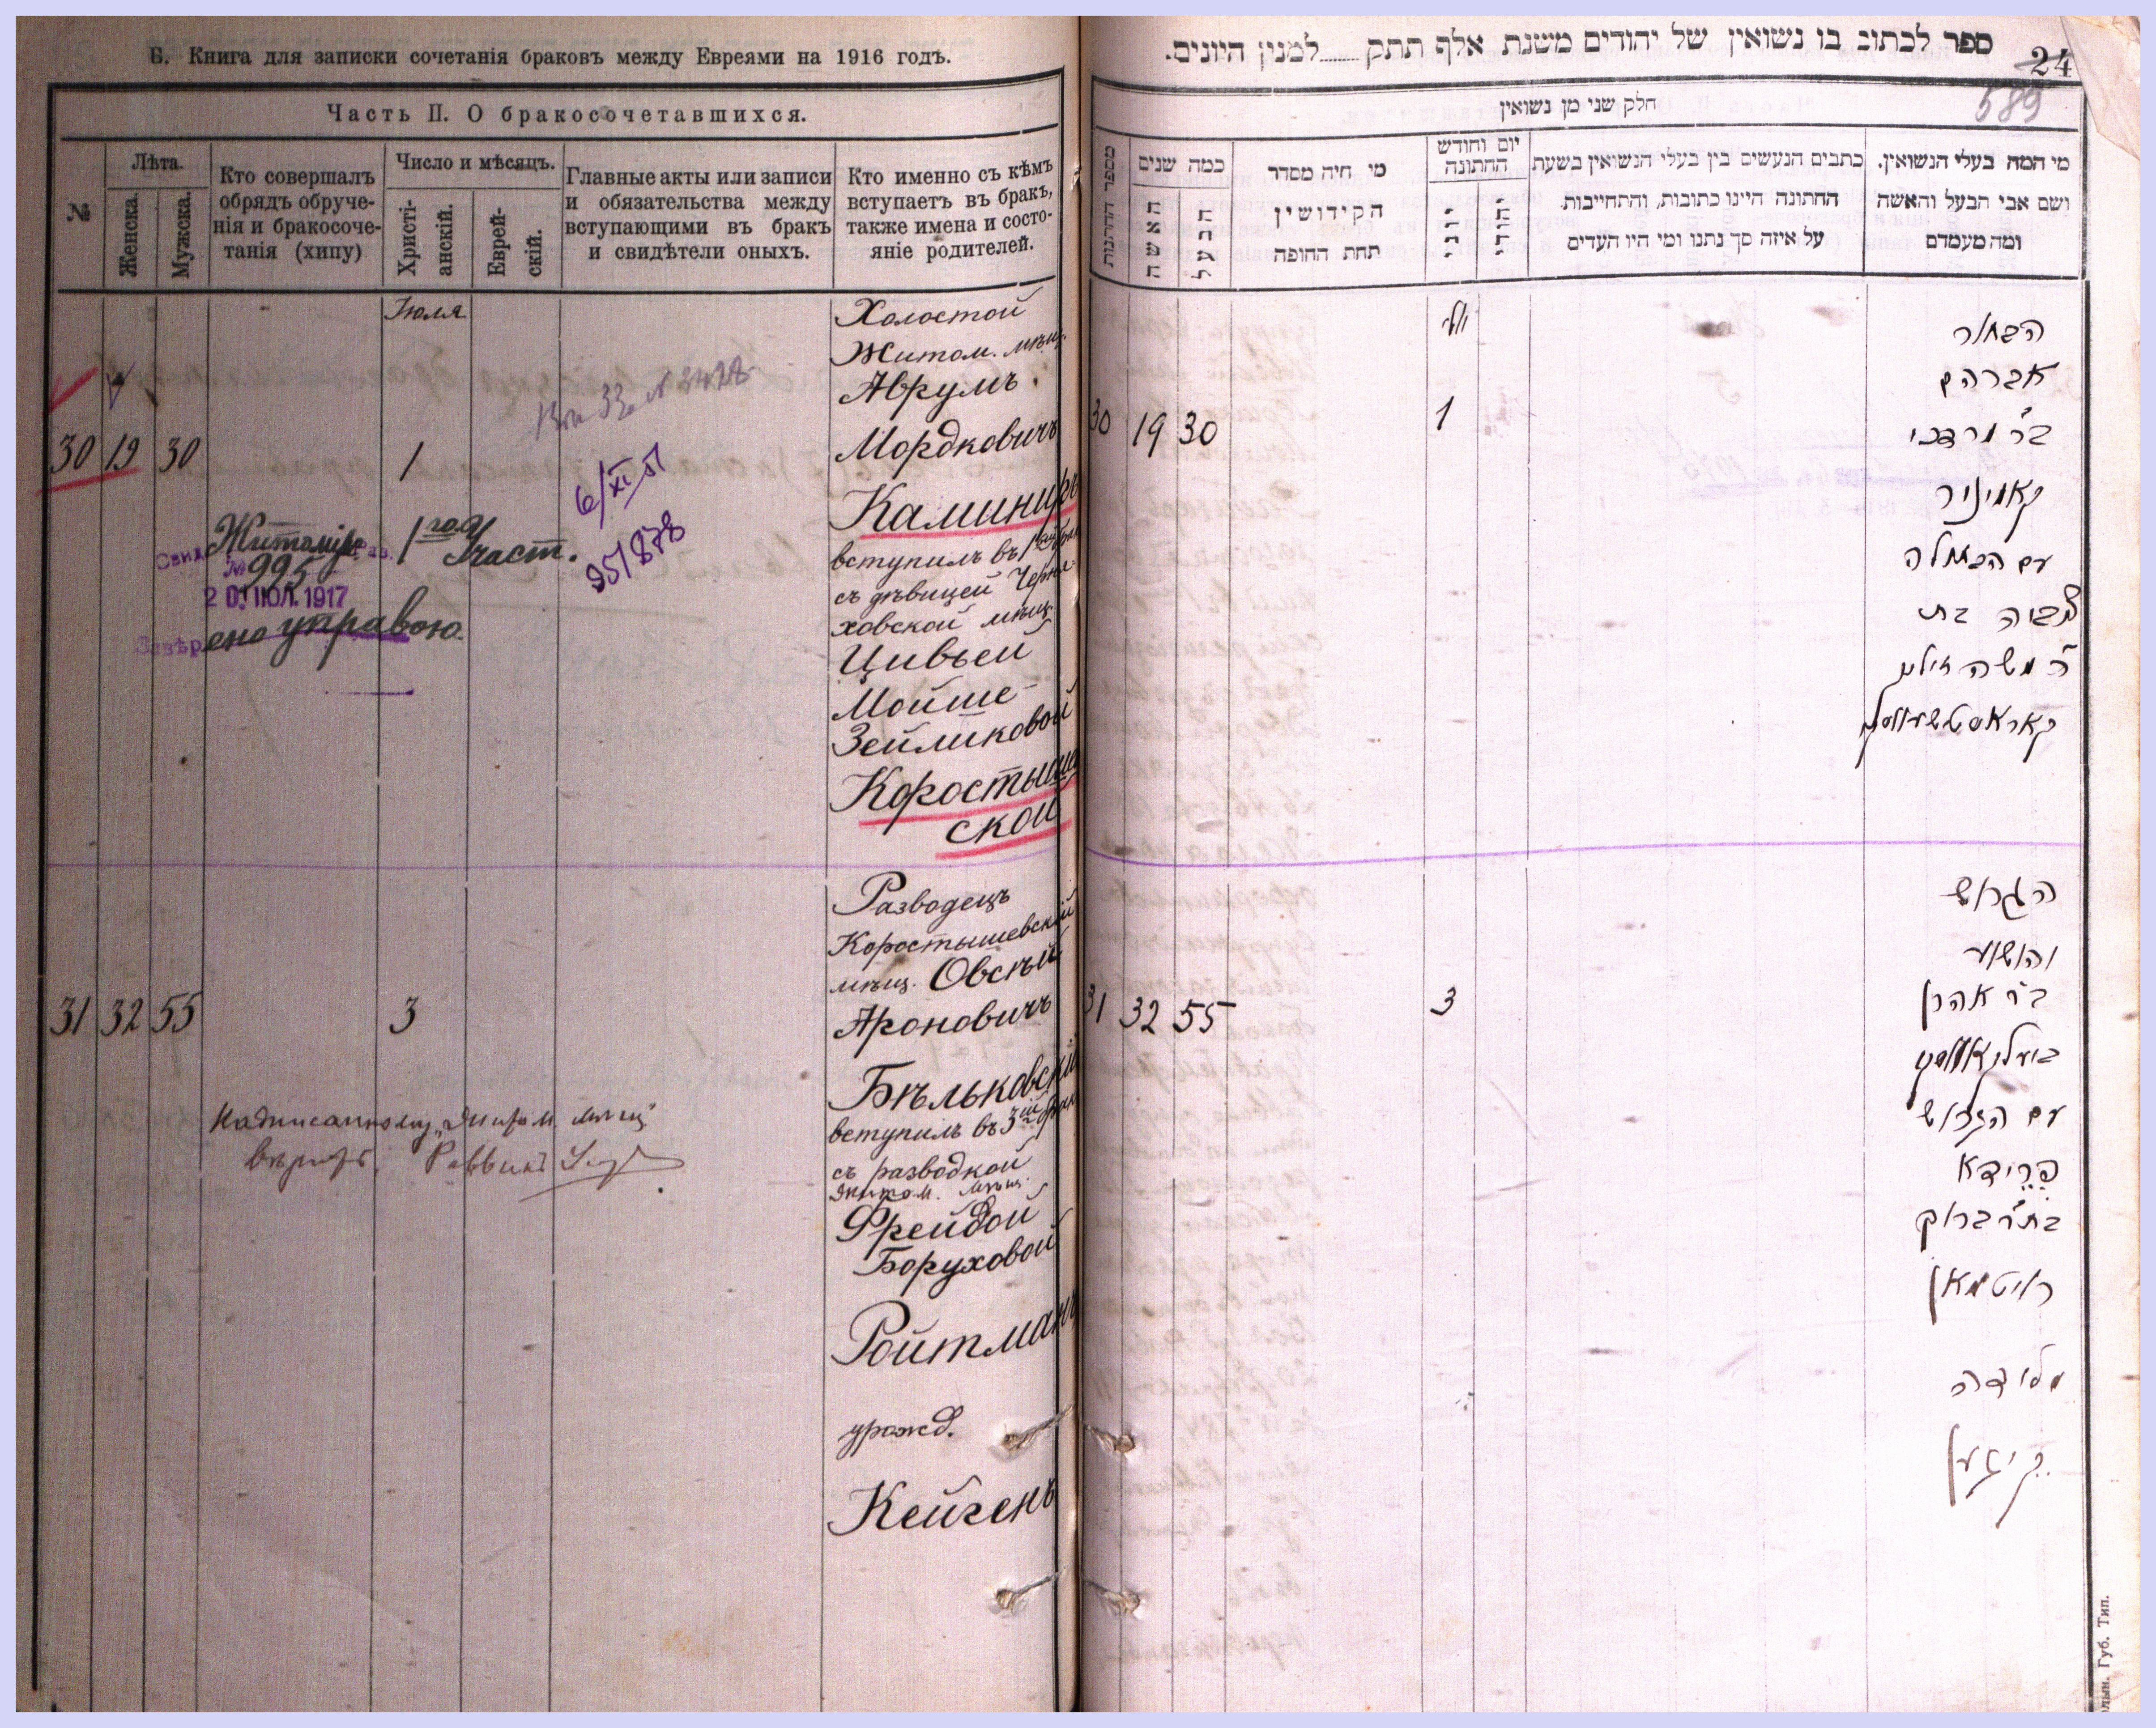 Б. Книга для записки сочетанія браковъ между Евреями на 1916 годъ.
Часть II. О бракосочетавшихся.
№
Лѣта.
Женска.
Мужска.
Кто совершалъ
обрядъ обруче-
нія и бракосоче-
танія (хипу)
Число и мѣсяцъ.
Христі-
анскій.
Еврей-
скій.
Главные акты или записи
и обязательства между
вступающими въ бракъ
и свидѣтели оныхъ.
Кто именно съ кѣмъ
вступаетъ въ бракъ,
также имена и состо-
яніе родителей.
Іюля
30 19 30
1
6/XI 51
951878
Свид.
Житомір.
1го Участ.
№ 995
20 ІЮЛ. 1917
Завѣрено управою.
Холостой
Житом. мѣщ.
Аврумъ
Мордковичъ
Каминиръ
вступилъ въ 1ый бракъ
съ дѣвицей Черня-
ховской мѣщ.
Цивьей
Мойше-
Зейликовой
Коростыше
ской
31 32 55
3
Надписанному „Житом. мѣщ“
вѣрить. Раввинъ
Разводецъ
Коростышевскій
мѣщ. Овсѣй
Ароновичъ
Бѣльковскій
вступилъ въ 3ій бракъ
съ разводкой
Житом. мѣщ.
Фрейдой
Боруховой
Ройтманъ
урожд.
Кейгенъ
ספר לכתוב בו נשואין של יהודים משנת אלף תתק ......... למנין היונים.
24
589
חלק שני מן נשואין
מספר החתונות
כמה שנים
האשה
הבעל
מי היה מסדר
הקידושין
תחת החופה
יום וחודש
החתונה
יוני
יהודי
כתבים הנעשים בין בעלי הנשואין בשעת
החתונה היינו כתובות, והתחייבות
על איזה סך נתנו ומי היו העדים
מי המה בעלי הנשואין.
ושם אבי הבעל והאשה
ומה מעמדם
יולי
30 19 30
1
הבחור
אברהם
ב״ר מרדכי
קאמיניר
עם הבתולה
צביה בת
ר׳ משה זעליג
קאראסטשעווסקי
31 32 55
3
הגרוש
יהושע
ב״ר אהרן
ביעלקאווסקי
עם הגרושה
פרידא
בת״ר ברוך
רויטמאן
מלידה
קייגען
Губ. Тип.